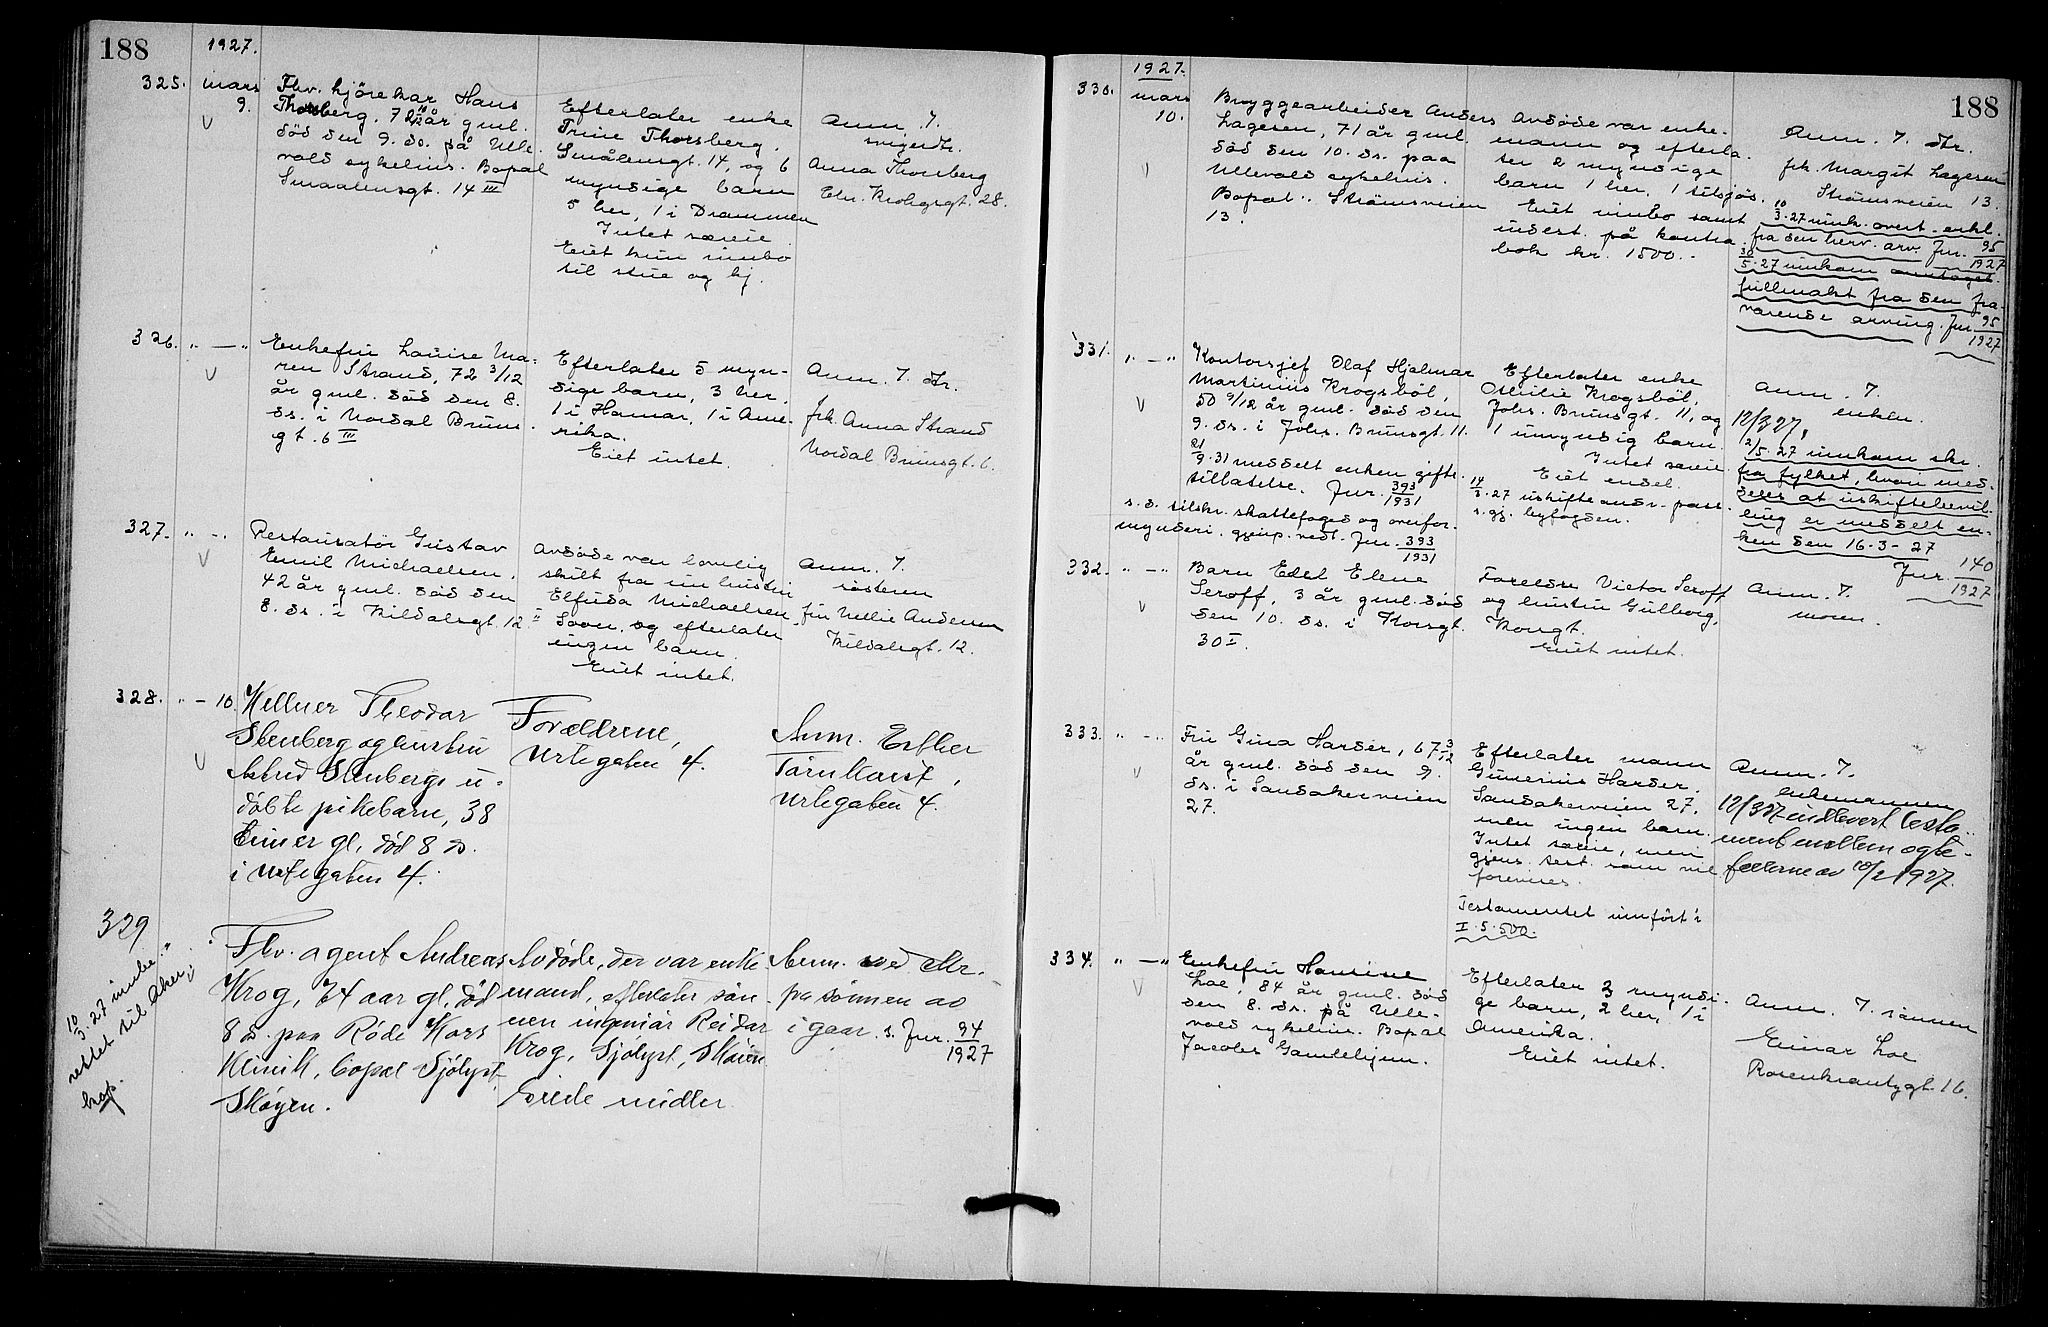 188
1927.
325. mars
9.
Fhv. kjörekar Hans
Thorsberg, 7 år gml.
död den 9. ds. på Ulle-
vold sykehus. Bopæl
Smaalensgt. 14 III
Efterlater enke
Trine Thorsberg.
Smålensgt. 14, og 6
myndige barn
5 her, 1 i Drammen
Intet særeie.
Eiet kun innbo
til stue og kj.
Anm. 7.
svigerdtr.
Anna Thorsberg
Chr. Krohgsgt. 28.
326. " — "
Enkefru Louise Ma-
ren Strand, 72 3/12
år gml. död den 8.
ds. i Nordal Bruns-
gt. 6 III
Efterlater 5 myn-
dige barn, 3 her,
1 i Hamar, 1 i Ame-
rika.
Eiet intet.
Anm. 7. dtr.
frk. Anna Strand
Nordal Brunsgt. 6.
327. " — "
Restauratör Gustav
Emil Michaelsen,
42 år gml. död den
8. ds. i Kildalsgt. 12 II
Avdøde var lovlig
skilt fra sin hustru
Elfrida Michaelsen
og efterlater
ingen barn.
Eiet intet.
Anm. 7.
søsteren
fru Nellie Andersen
Kildalsgt. 12.
328. " — 10.
Kellner Theodor
Stenberg og hustru
Astrid Stenbergs u-
døbte pikebarn, 38
timer gl, død 8 ds.
i Urtegaten 4.
Forældrene,
Urtegaten 4.
Anm. Esther
Törnkvist,
Urtegaten 4.
329
10/3.27 innbe.
rettet til Aker
Fhv. agent Andreas
Krog, 74 aar gl, død
8 ds. paa Røde Kors
Klinik, bopæl Sjölyst,
Skøyen.
Avdøde, der var enke-
mand, efterlater søn-
nen ingeniør Reidar
Krog, Sjölyst, Skøien
Eiede midler
Anm. ved skr.
fra sønnen av
i gaar. s. Jur. 94/1927
188
1927.
330. mars
10.
Bryggearbeider Anders
Lagesen, 71 år gml.
död den 10. ds. paa
Ullevold sykehus.
Bopæl: Strömsveien
13.
Avdöde var enke-
mann og efterla-
ter 2 myndige
barn 1 her, 1 tilsjøs.
Eiet innbo samt
indest. på kontra-
bok kr. 1500.-
Anm. 7. dtr.
frk. Margit Lagesen
Strömsveien 13.
10/3.27 innk. overt. erkl.
fra den herv. arv. Jur. 95/1927
30/5.27 innkom
fullmakt fra den fra-
værende arving. Jur. 95/1927
331. " — "
Kontorsjef Olaf Hjalmar
Martinius Krogsböl,
50 9/12 år gml. död den
9. ds. i Johs. Brunsgt. 11.
21/9.31 meddelt enken gifte-
tillatelse. Jur. 393/1931
s. d. tilskr. skattefoged og overfor-
mynderi. gjenp. vedl. Jur. 393/1931
Efterlater enke
Othilie Krogsböl,
Johs. Brunsgt. 11, og
1 umyndig barn.
Intet særeie
Eiet endel.
14/3.27 uskifteandr. pass.
s. gj. byfogden.
Anm. 7.
enken.
12/3 27,
2/5.27 innkom skr.
fra fylket, hvori med-
deles at uskiftebevil-
ling er meddelt en-
ken den 16-3-27
Jur. 140/1927
332. " — "
Barn Edel Elene
Seroff, 3 år gml. död
den 10. ds. i Korsgt.
30 I.
Foreldre Victor Seroff
og hustru Gulborg,
Korsgt.
Eiet intet.
Anm. 7.
moren.
333. " — "
Fru Gina Harder, 67 3/12
år gml. död den 9.
ds. i Sandakerveien
27.
Efterlater mann
Gunerius Harder.
Sandakerveien 27,
men ingen barn.
Intet særeie, men
gjens. test. som vil
forevises.
Testamentet innført i
I. S. 500.
Anm. 7.
enkemannen
12/3 27 indlevert testa-
ment mellem ægte-
fællerne av 18/2 1927.
334. " — "
Enkefru Hansine
Loe, 84 år gml. död
den 8. ds. på Ulle-
vold sykehus. Bopæl
Jacobs Gamlehjem.
Efterlater 3 myndi-
ge barn, 2 her, 1 i
Amerika.
Eiet intet.
Anm. 7. sönnen
Einar Loe
Rosenkrantzgt. 16.